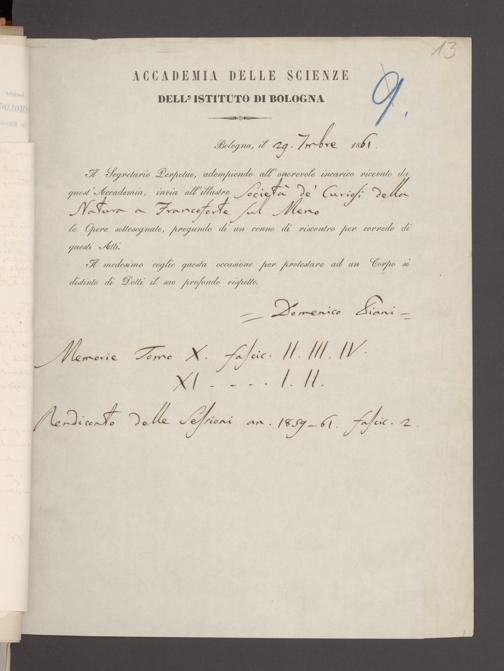 13
ACCADEMIA DELLE SCIENZE
9.
DELL' ISTITUTO DI BOLOGNA
Bologna, il 29. 7mbre 1861.
Il Segretario Perpetuo, adempiendo all' onorevole incarico ricevuto da
quest' Accademia, invia all' illustre Società de' Curiosi della
Natura a Francoforte sul Meno
le Opere sottosegnate, pregando di un cenno di riscontro per corredo di
questi Atti.
Il medesimo coglie questa occasione per protestare ad un Corpo sì
distinto di Dotti il suo profondo rispetto.
= Domenico Piani =
Memorie Tomo X. fascic. II. III. IV.
XI - - - - I. II.
Rendiconto delle Sessioni an. 1859-61. fascic. 2.